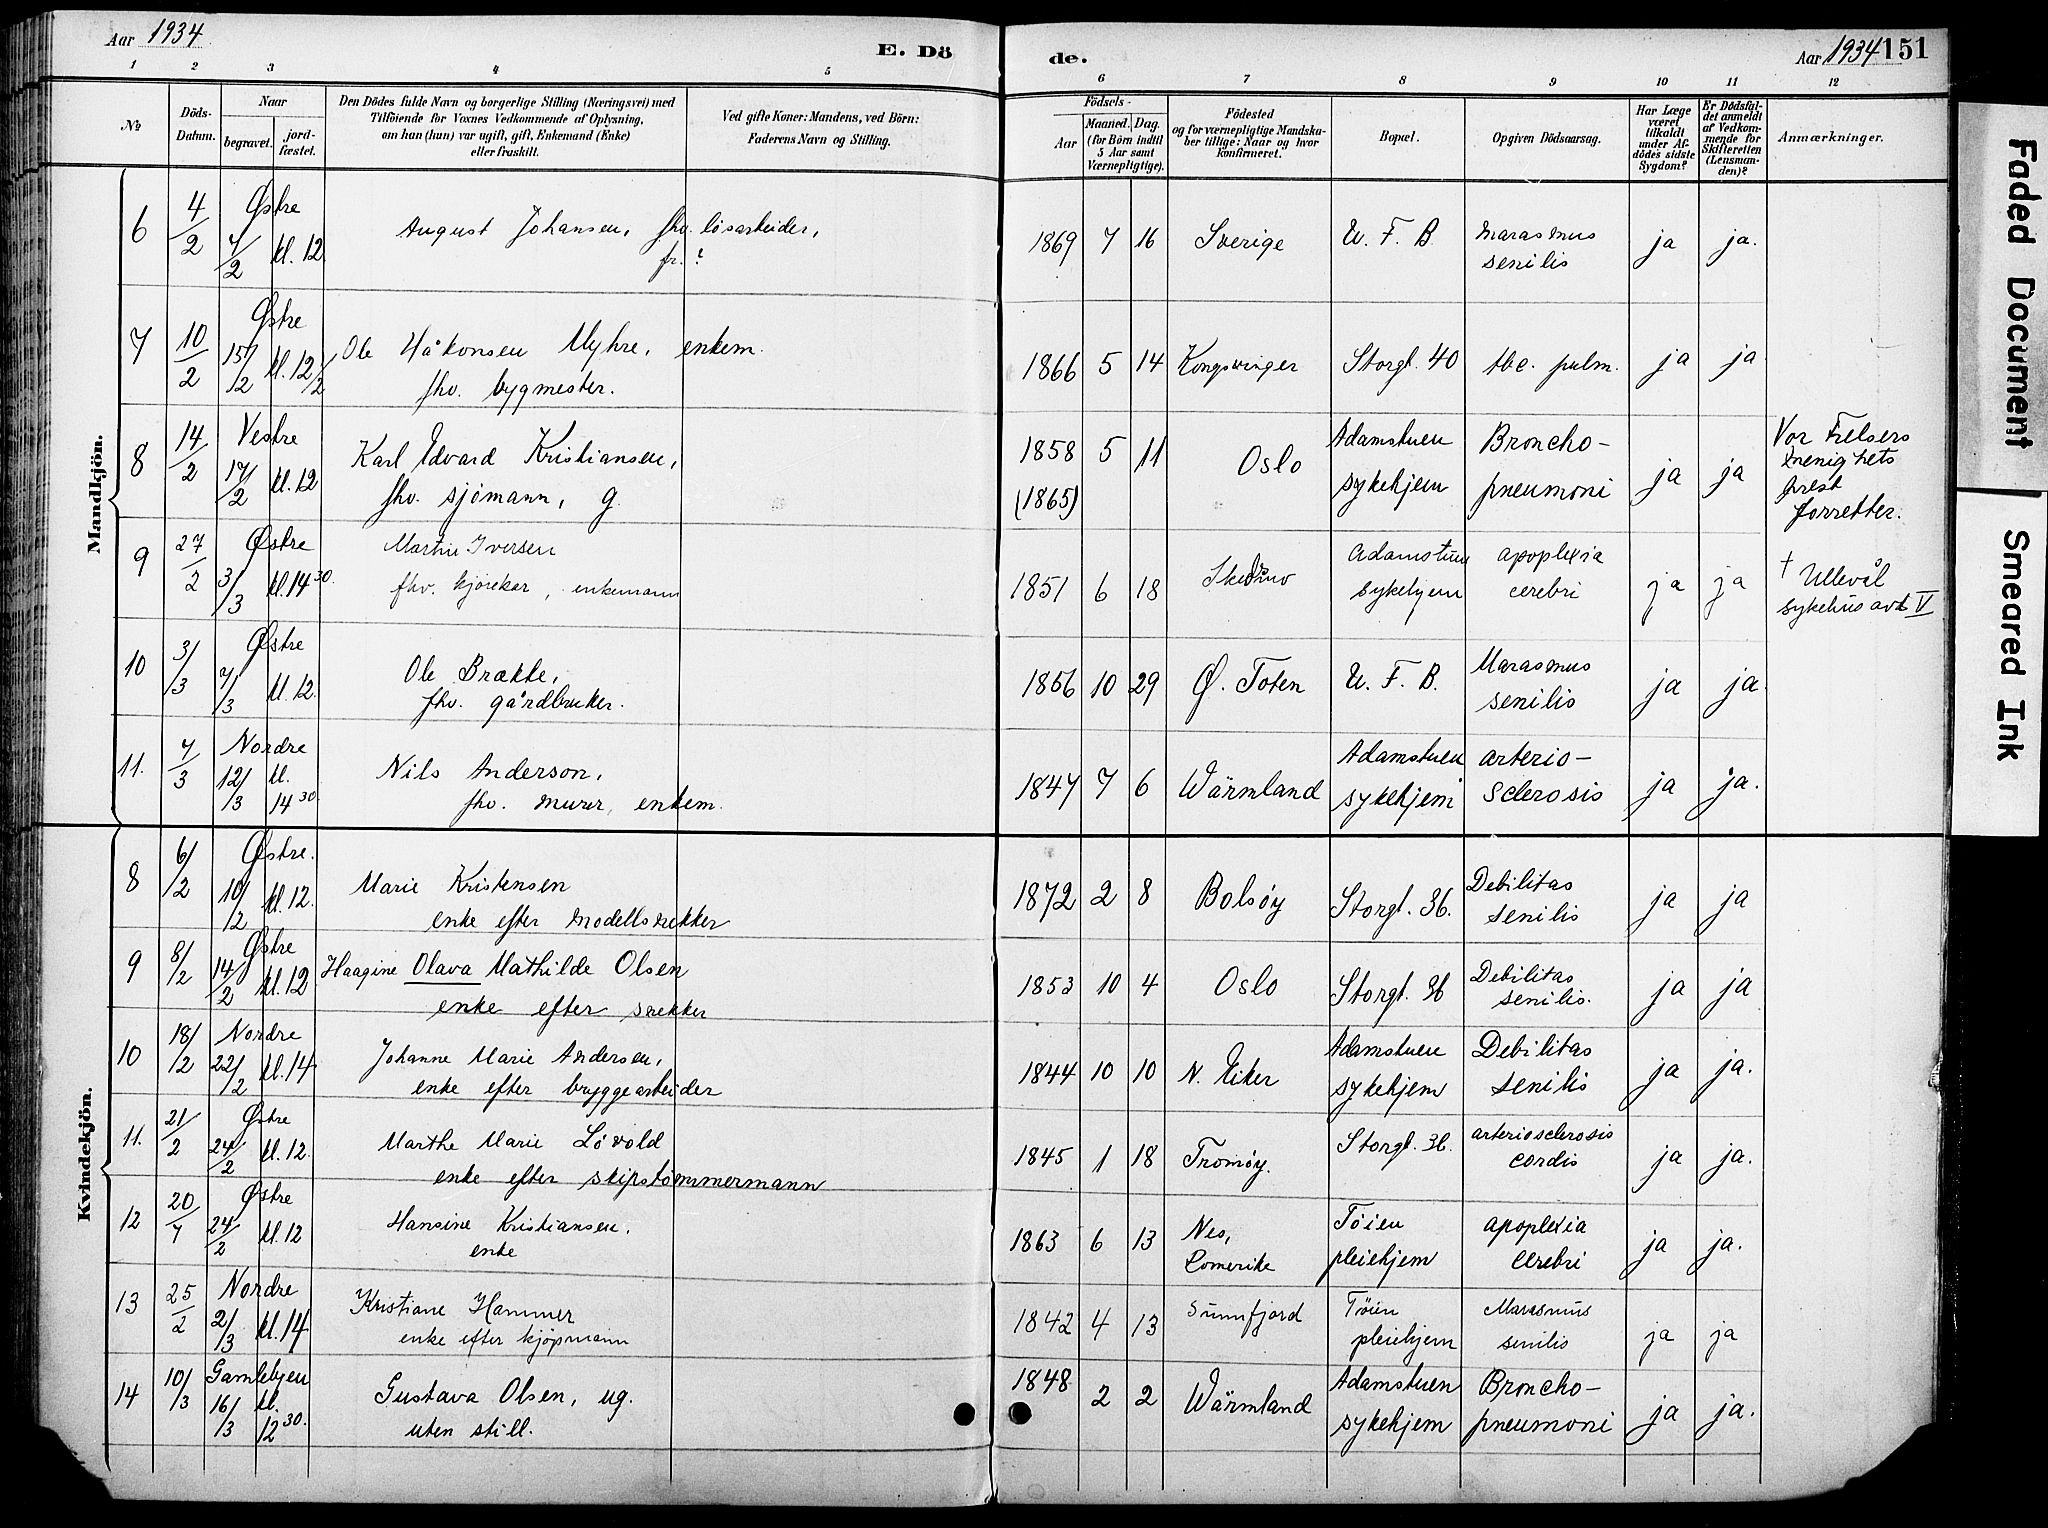 Aar 1934
E. Dö
de.
Aar 1934 151
1 2 3 4 5 6 7 8 9 10 11 12
№
Döds-Datum.
Naar
begravet.
jord-fæstet.
Den Dödes fulde Navn og borgerlige Stilling (Næringsvei) med
Tilföiende for Voxnes Vedkommende af Oplysning,
om han (hun) var ugift, gift, Enkemand (Enke)
eller fraskilt.
Ved gifte Koner: Mandens, ved Börn:
Faderens Navn og Stilling.
Födsels-
Aar
Maaned. Dag.
(for Börn indtil
5 Aar samt
Værnepligtige).
Födested
og for værnepligtige Mandska-
ber tillige: Naar og hvor
konfirmeret.
Bopæl.
Opgiven Dödsaarsag.
Har Læge
været
tilkaldt
under Af-
dödes sidste
Sygdom?
Er Dödsfal-
det anmeldt
af Vedkom-
mende for
Skifteretten
(Lensman-
den)?
Anmærkninger.
Mandkjön.
6 4/2 Østre 7/2 kl. 12 August Johansen, fhv. løsarbeider, 1869 7 16 Sverige U. F. B. Marasmus ja ja.
fr. ? senilis
7 10/2 Østre 15/2 kl. 12 1/2 Ole Håkonsen Myhre, enkem. 1866 5 14 Kongsvinger Storgt. 40 tbc. pulm. ja ja
fhv. bygmester.
8 14/2 Vestre 17/2 kl. 12 Karl Edvard Kristiansen, 1858 5 11 Oslo Adamstuen Broncho- ja ja Vor Frelsers
fhv. sjómann, g. (1865) sykehjem pneumoni menighets
prest
forretter.
9 27/2 Østre 3/3 kl. 14 30. Martin Iversen 1851 6 18 Adamstuen apoplexia ja ja † Ullevål
fhv. kjørekar, enkemann sykehjem cerebri sykehus avd V
10 3/3 Østre 7/3 kl. 12. Ole Brække, 1856 10 29 Ø. Toten U. F. B. Marasmus ja ja.
fhv. gårdbruker. senilis
11. 7/3 Nordre 12/3 kl. 14 30. Nils Anderson, 1847 7 6 Wärmland Adamstuen arterio- ja ja.
fhv. murer, enkem. sykehjem sclerosis
Kvindekjön.
8 6/2 Østre. 10/2 kl. 12. Marie Kristensen 1872 2 8 Bolsøy Storgt. 36. Debilitas ja ja
enke efter modellsnekker senilis
9 8/2 Østre 14/2 kl. 12 Haagine Olava Mathilde Olsen 1853 10 4 Oslo Storgt. 36 Debilitas ja ja
enke efter snekker senilis.
10 18/2 Nordre 22/2 kl. 14 Johanne Marie Andersen, 1844 10 10 N. Eiker Adamstuen Debilitas ja ja.
enke efter bryggearbeider sykehjem senilis
11. 21/2 Østre 24/2 kl. 12. Marthe Marie Løvold 1845 1 18 Tromøy. Storgt. 36. arteriosclerosis ja ja.
enke efter skipstømmermann cordis
12 20/7 Østre 24/2 kl. 12 Hansine Kristiansen, 1863 6 13 Nes, Tøien apoplexia ja ja.
enke Romerike pleiehjem cerebri
13 25/2 Nordre 2/3 kl. 14 Kristiane Hammer 1842 4 13 Sunnfjord Tøien Marasmus ja ja
enke efter kjøpmann pleiehjem senilis
14 10/3 Gamlebyen 16/3 kl. 12 30. Gustava Olsen, ug. 1848 2 2 Wärmland Adamstuen Broncho- ja ja.
uten still. sykehjem pneumoni
Faded Document
Smeared Ink